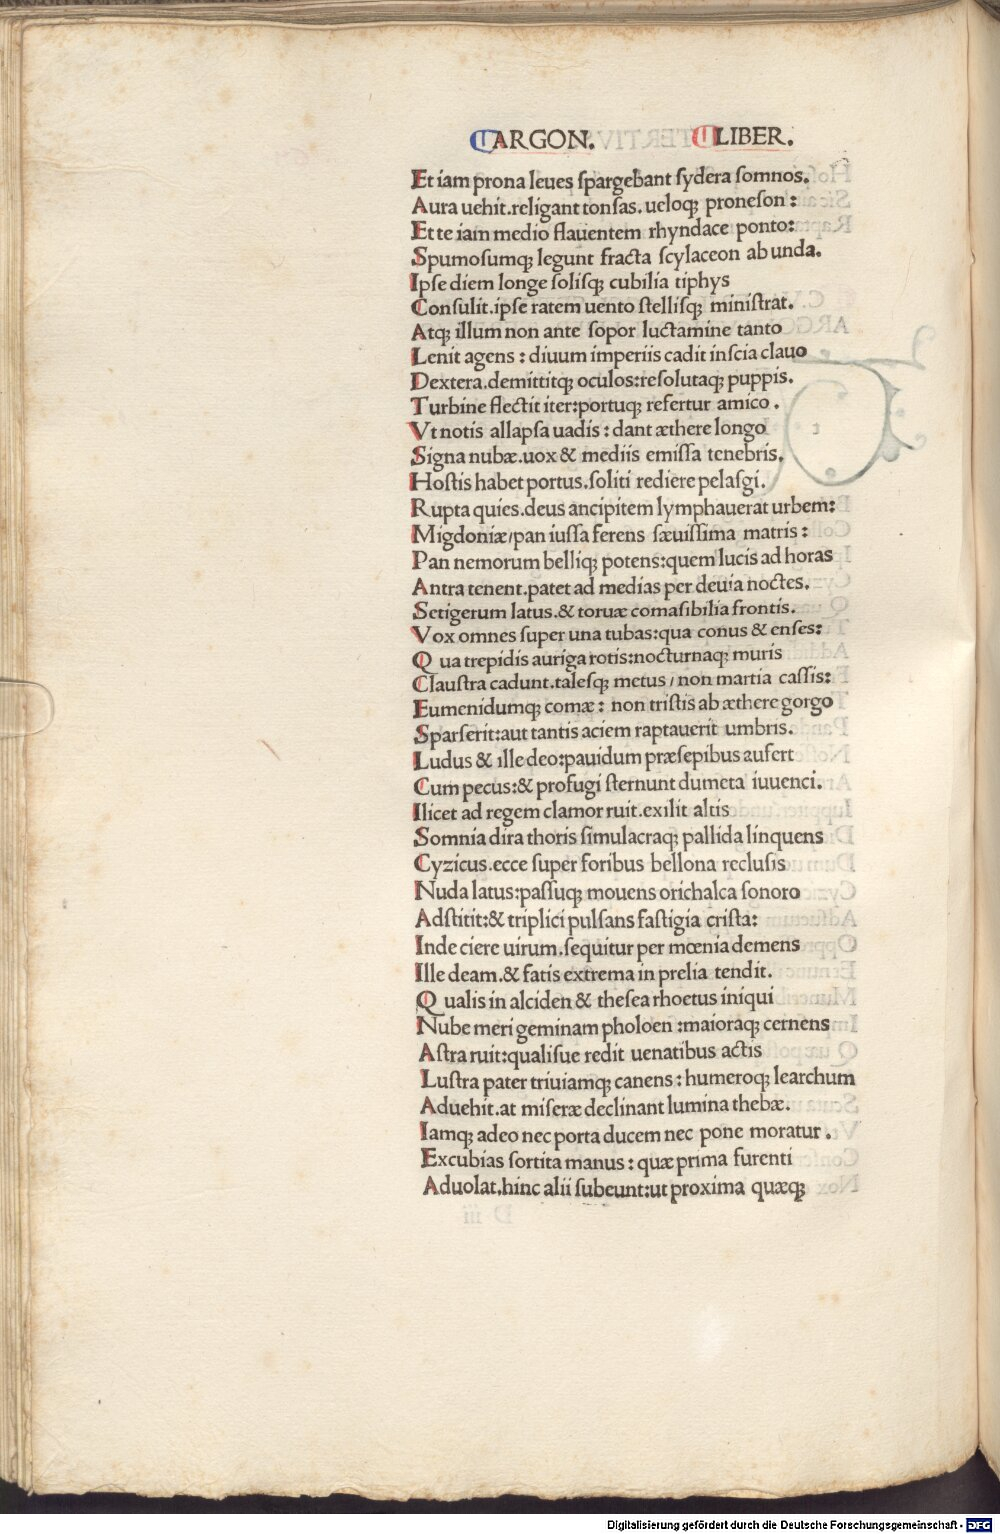 ARGON. LIBER.
Et iam prona leues ſpargebant ſydera ſomnos.
Aura uehit.religant tonſas.ueloqꝫ proneſon:
Et te iam medio flauentem rhyndace ponto:
Spumoſumqꝫ legunt fracta ſcylaceon ab unda.
Ipſe diem longe ſoliſqꝫ cubilia tiphys
Conſulit.ipſe ratem uento ſtelliſqꝫ miniſtrat.
Atqꝫ illum non ante ſopor luctamine tanto
Lenit agens: diuum imperiis cadit inſcia clauo
Dextera.demittitqꝫ oculos:reſolutaqꝫ puppis.
Turbine flectit iter:portuqꝫ refertur amico.
Vt notis allapſa uadis: dant æthere longo
Signa nubæ.uox & mediis emiſſa tenebris.
Hoſtis habet portus.ſoliti rediere pelaſgi.
Rupta quies.deus ancipitem lymphauerat urbem:
Migdoniæ/pan iuſſa ferens ſæuiſſima matris:
Pan nemorum belliqꝫ potens:quem lucis ad horas
Antra tenent.patet ad medias per deuia noctes.
Setigerum latus.& toruæ comaſibilia frontis.
Vox omnes ſuper una tubas:qua conus & enſes:
Qua trepidis auriga rotis:nocturnaqꝫ muris
Clauſtra cadunt.taleſqꝫ metus/non martia caſſis:
Eumenidumqꝫ comæ: non triſtis ab æthere gorgo
Sparſerit:aut tantis aciem raptauerit umbris.
Ludus & ille deo:pauidum præſepibus aufert
Cum pecus:& profugi ſternunt dumeta iuuenci.
Ilicet ad regem clamor ruit.exilit altis
Somnia dira thoris ſimulacraqꝫ pallida linquens
Cyzicus.ecce ſuper foribus bellona recluſis
Nuda latus:paſſuqꝫ mouens orichalca ſonoro
Adſtitit:& triplici pulſans faſtigia criſta:
Inde ciere uirum.ſequitur per mœnia demens
Ille deam.& fatis extrema in prelia tendit.
Qualis in alciden & theſea rhoetus iniqui
Nube meri geminam pholoen:maioraqꝫ cernens
Aſtra ruit:qualiſue redit uenatibus actis
Luſtra pater triuiamqꝫ canens: humeroqꝫ learchum
Aduehit.at miſeræ declinant lumina thebæ.
Iamqꝫ adeo nec porta ducem nec pone moratur.
Excubias ſortita manus: quæ prima furenti
Aduolat.hinc alii ſubeunt:ut proxima quæqꝫ
Digitalisierung gefördert durch die Deutsche Forschungsgemeinschaft - DFG